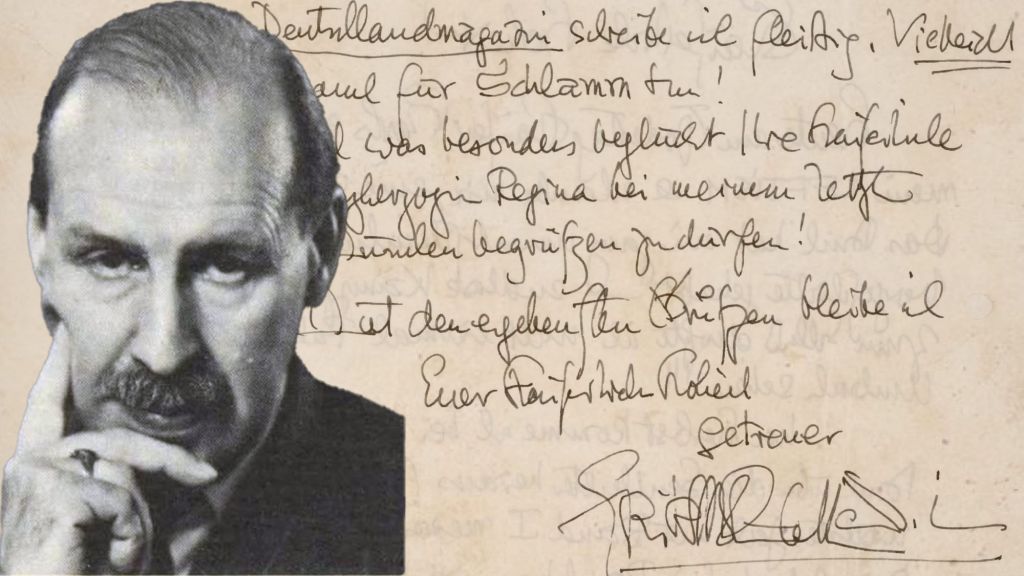 Deutschlandmagazin schreibe ich fleißig. Vielleicht
auch für Schlamm tun!
was besonders beglückt Ihre Kaiserliche
Regina bei meinem letzt
Stunden begrüßen zu dürfen!
Mit den ergebensten Grüßen bleibe ich
Euer Kaiserlichen Hoheit
getreuer